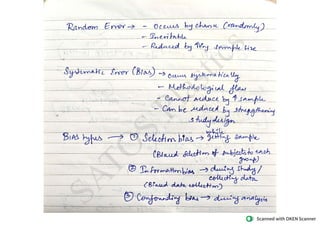 Random Error → - Occurs by chance (randomly)
- Inevitable
- Reduced by ↑ing sample size
Systematic Error (Bias) → - occurs systematically
- Methodological flaw
- Cannot reduce by ↑ sample
- Can be reduced by strengthening
study design
Bias types → ① Selection bias → while getting sample
(Biased selection of subjects to each
group)
② Information bias → during study/
collecting data
(Biased data collection)
③ Confounding bias → during analysis
Scanned with OKEN Scanner